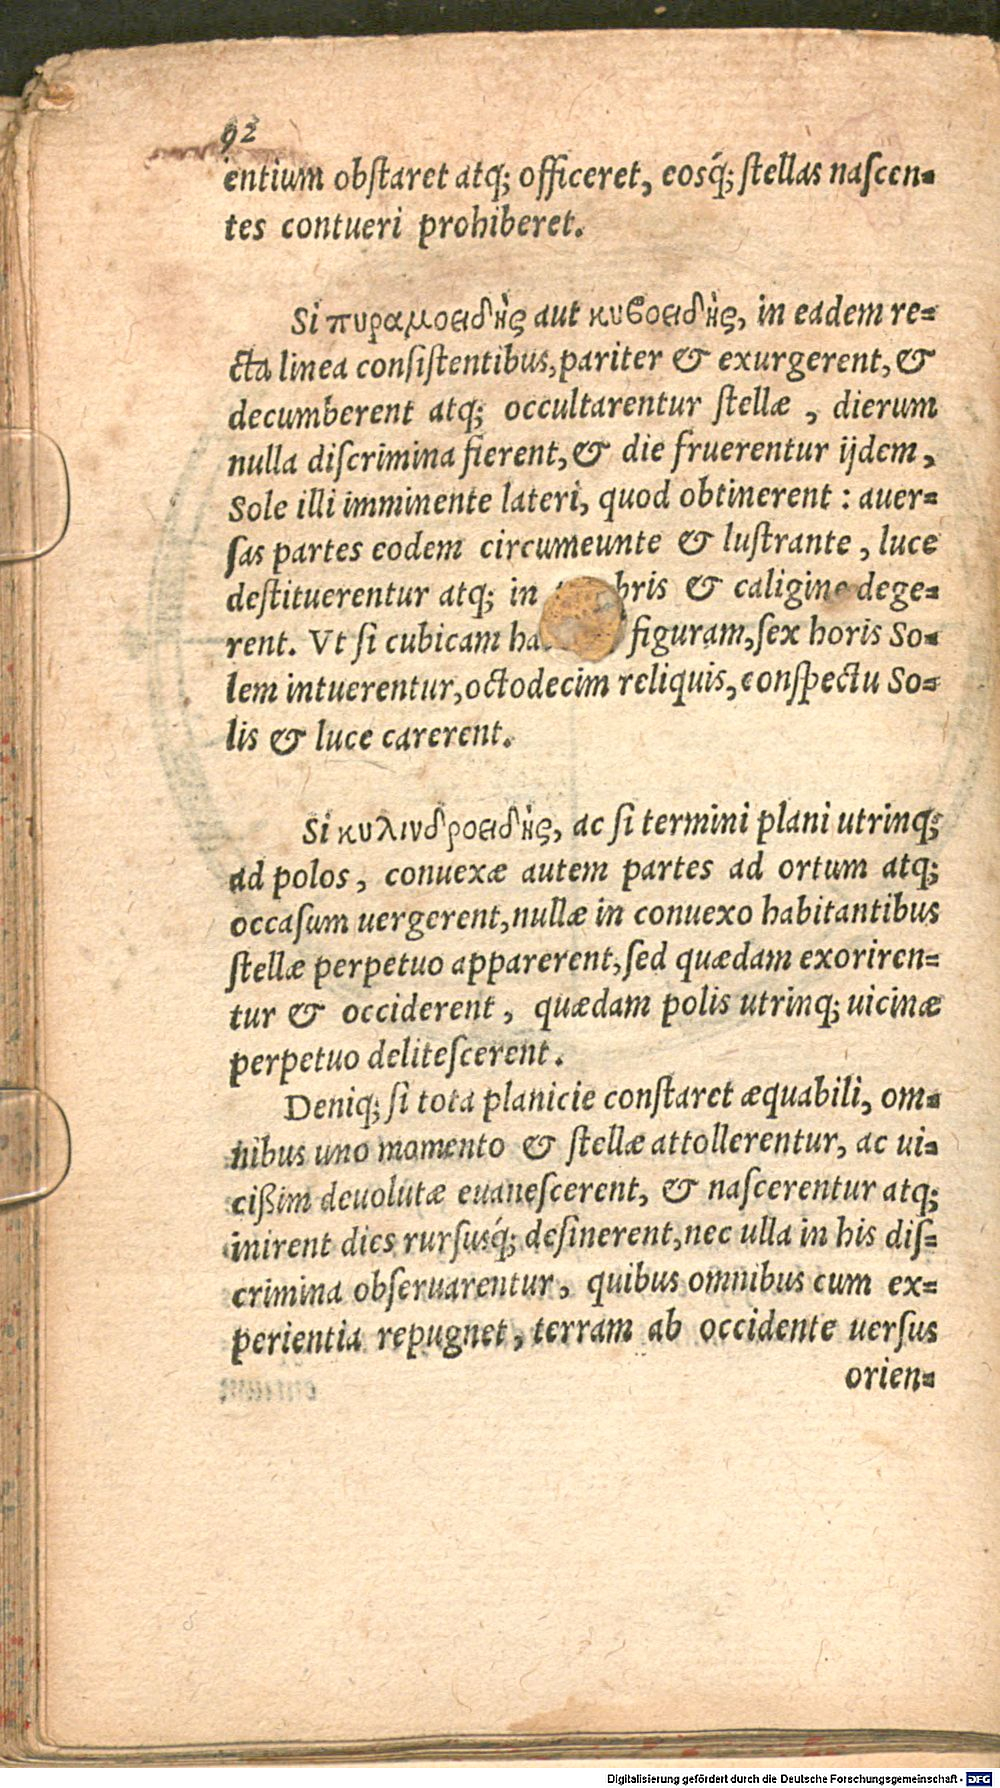 92
entium obstaret atq; officeret, eosq́; stellas nascen-
tes contueri prohiberet.
Si πυραμοειδὴς aut κυβοειδὴς, in eadem re-
cta linea consistentibus, pariter & exurgerent, &
decumberent atq; occultarentur stellæ, dierum
nulla discrimina fierent, & die fruerentur ijdem,
Sole illi imminente lateri, quod obtinerent: auer-
sas partes eodem circumeunte & lustrante, luce
destituerentur atq; in & caligine dege-
rent. Vt si cubicam figuram, sex horis So-
lem intuerentur, octodecim reliquis, conspectu So-
lis & luce carerent.
Si κυλινδροειδὴς, ac si termini plani utrinq;
ad polos, conuexæ autem partes ad ortum atq;
occasum uergerent, nullæ in conuexo habitantibus
stellæ perpetuo apparerent, sed quædam exoriren-
tur & occiderent, quædam polis utrinq; uicinæ
perpetuo delitescerent.
Deniq; si tota planicie constaret æquabili, om-
nibus uno momento & stellæ attollerentur, ac ui-
cißim deuolutæ euanescerent, & nascerentur atq;
inirent dies rursusq́; desinerent, nec ulla in his dis-
crimina obseruarentur, quibus omnibus cum ex-
perientia repugnet, terram ab occidente uersus
orien-
Digitalisierung gefördert durch die Deutsche Forschungsgemeinschaft - DFG